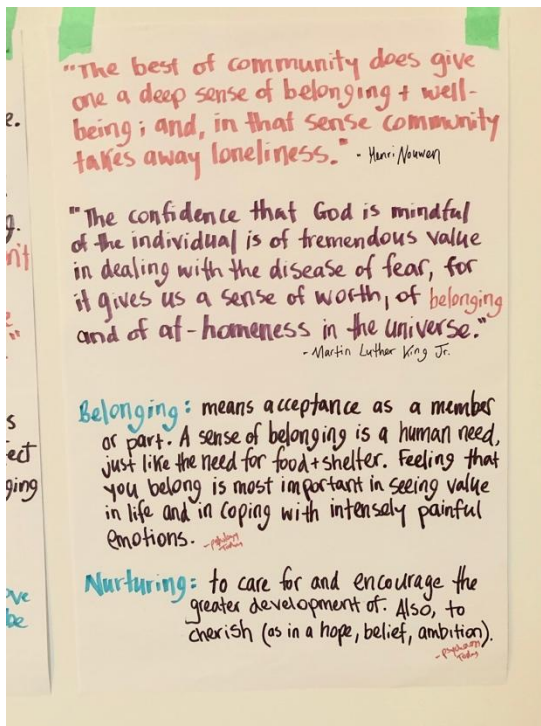 "The best of community does give
one a deep sense of belonging + well-
being; and, in that sense community
takes away loneliness." - Henri Nouwen
"The confidence that God is mindful
of the individual is of tremendous value
in dealing with the disease of fear, for
it gives us a sense of worth, of belonging
and of at-homeness in the universe."
- Martin Luther King Jr.
Belonging: means acceptance as a member
or part. A sense of belonging is a human need,
just like the need for food + shelter. Feeling that
you belong is most important in seeing value
in life and in coping with intensely painful
emotions.
Nurturing: to care for and encourage the
greater development of. Also, to
cherish (as in a hope, belief, ambition).